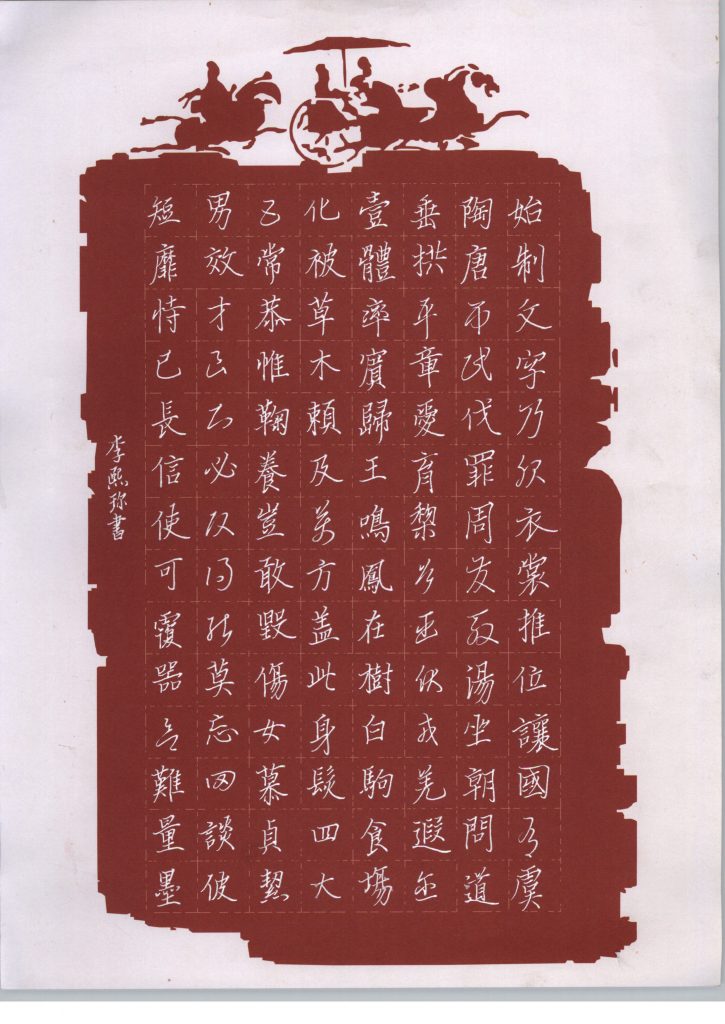 始制文字乃服衣裳推位讓國有虞
陶唐吊民伐罪周發殷湯坐朝問道
垂拱平章愛育黎首臣伏戎羌遐邇
壹體率賓歸王鳴鳳在樹白駒食塲
化被草木賴及萬方盖此身髮四大
五常恭惟鞠養豈敢毀傷女慕貞絜
男效才良必改得能莫忘罔談彼
短靡恃己長信使可覆器欲難量墨
李熙珎書